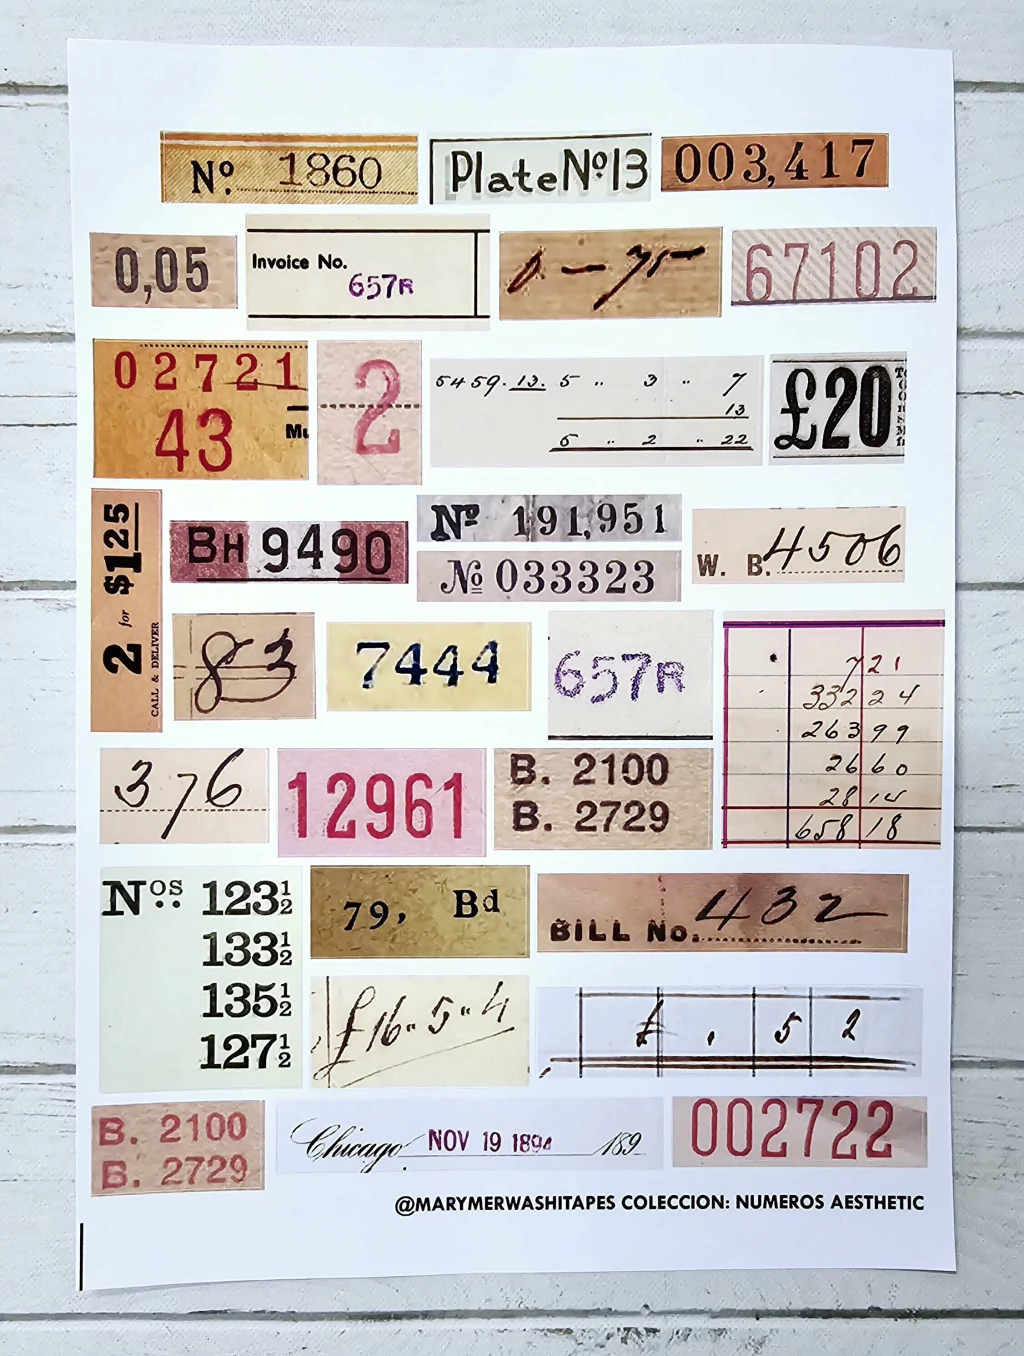 Nº. 1860
Plate Nº 13
003,417
0,05
Invoice No.
657R
0 — 75
67102
02721
43
2
5459.13. 5 " 3 " 7
13
5 " 2 " 22
£20
2 for $1.25
CALL & DELIVER
BH 9490
Nº 191,951
Nº 033323
W. B. 4506
83
7444
657R
7 21
332 24
263 99
26 60
28 14
658 18
376
12961
B. 2100
B. 2729
Nos. 123½
133½
135½
127½
79, Bd
BILL No. 432
£16 " 5 " 4
£ . 5 2
B. 2100
B. 2729
Chicago NOV 19 1894 189
002722
@MARYMERWASHITAPES COLECCION: NUMEROS AESTHETIC